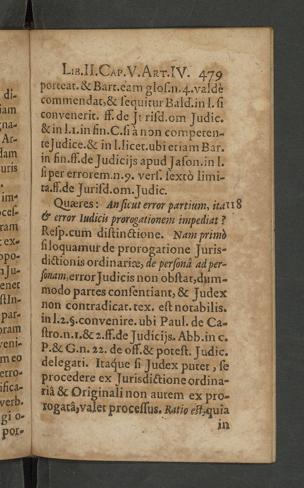 LIB. II. CAP. V. ART. IV. 479
porteat. & Bart. eam glos. n. 4. valdè
commendat, & sequitur Bald. in l. si
convenerit. ff. de Jurisd. om Judic.
& in l. 1. in fin. C. si à non competen-
te Judice. & in l. licet. ubi etiam Bar.
in fin. ff. de Judicijs apud Jason. in l.
si per errorem. n. 9. vers. sextò limi-
ta. ff. de Jurisd. om. Judic.
Quæres: An sicut error partium, ita 118
& error Iudicis prorogationem impediat?
Resp. cum distinctione. Nam primò
si loquamur de prorogatione Juris-
dictionis ordinariæ, de personâ ad per-
sonam, error Judicis non obstat, dum-
modo partes consentiant, & Judex
non contradicat. tex. est notabilis.
in l. 2. §. convenire. ubi Paul. de Ca-
stro. n. 1. & 2. ff. de Judicijs. Abb. in c.
P. & G. n. 22. de off. & potest. Judic.
delegati. Itaque si Judex putet, se
procedere ex Jurisdictione ordina-
riâ & Originali non autem ex pro-
rogatâ, valet processus. Ratio est, quia
in
di-
iam
gna-
Ar-
dam
uris
im-
ocef-
ram
ex-
opo-
nJu-
enet
stIn-
par-
oram
veni-
m eo
etro-
ifica-
verb.
gi o-
por-